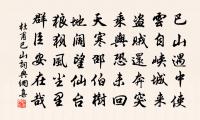 巴山遇中使
雲自峽城來
盜賊還奔突
乘輿恐未回
天寒邵伯樹
地闊望仙台
狼狽風塵里
群臣安在哉
杜甫巴山詞典網集